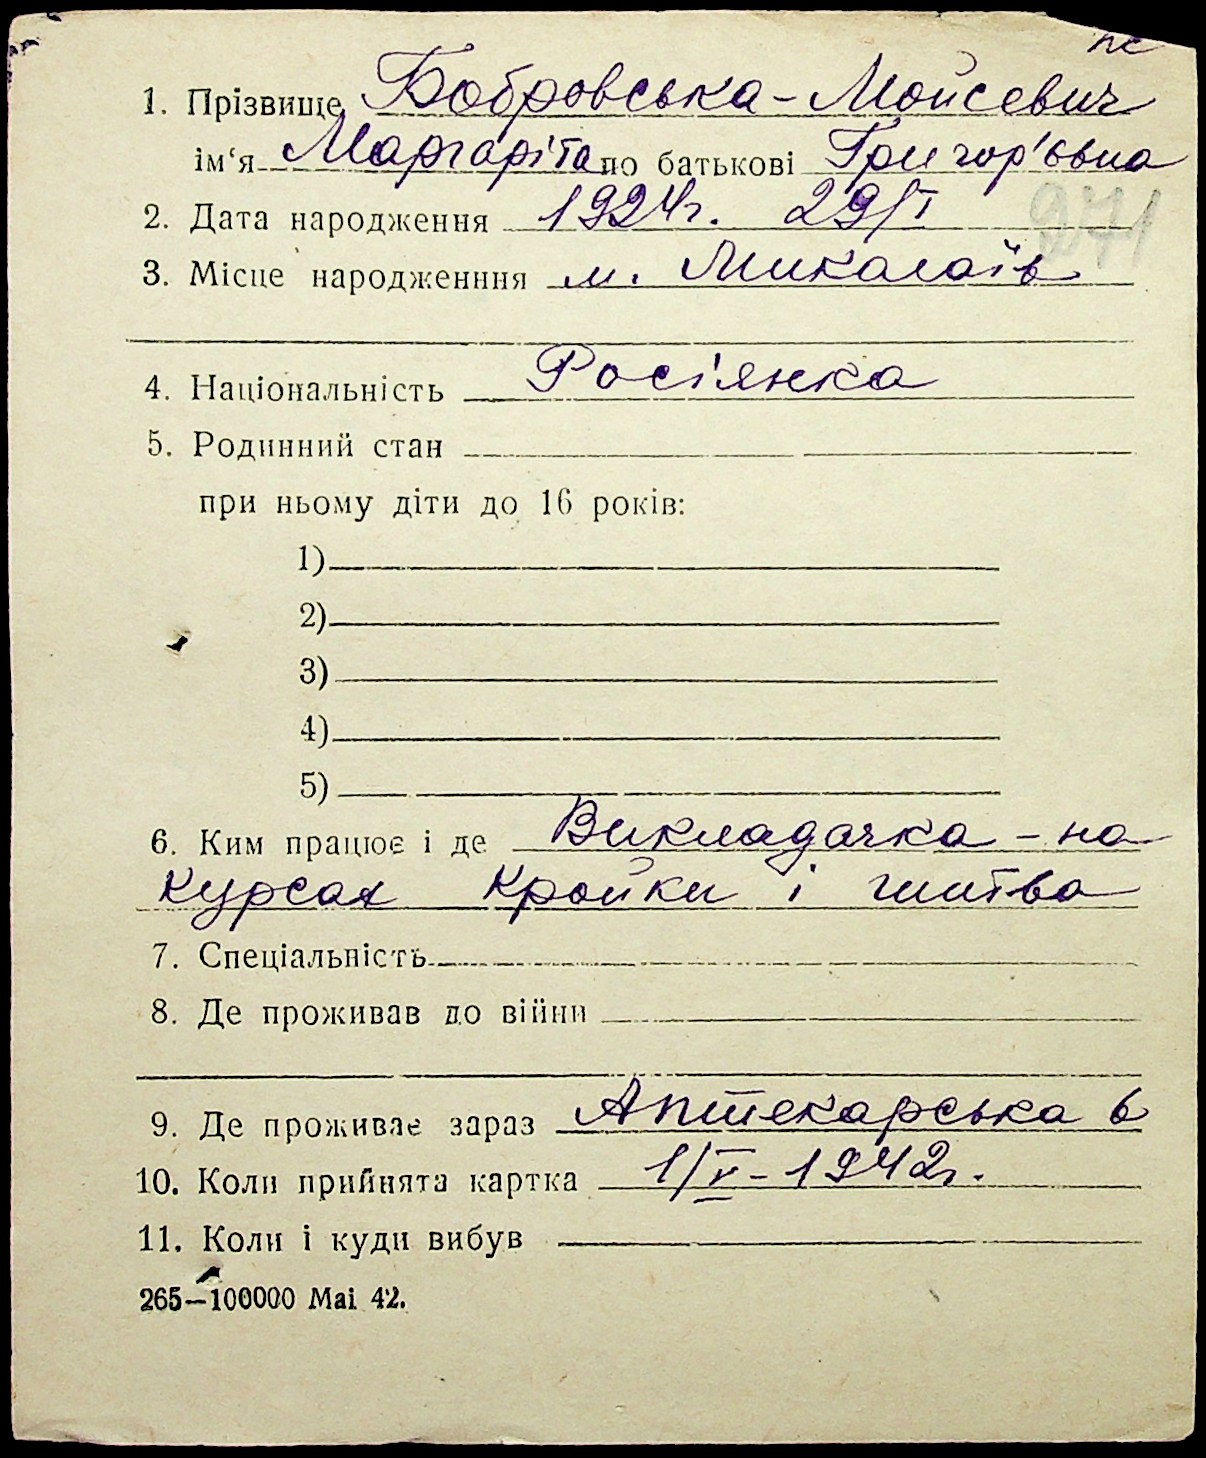 1. Прізвище Бобровська-Мойсевич
ім‘я Маргаріта по батькові Григор'євна
2. Дата народження 1924г. 29/I
271
3. Місце народженння м. Миколаїв
4. Національність Росіянка
5. Родинний стан
при ньому діти до 16 років:
1)
2)
3)
4)
5)
6. Ким працює і де Викладачка - на
курсах кройки і шитва
7. Спеціальність
8. Де проживав до війни
9. Де проживає зараз Аптекарська 6
10. Коли прийнята картка 1/V-1942г.
11. Коли і куди вибув
265—100000 Mai 42.